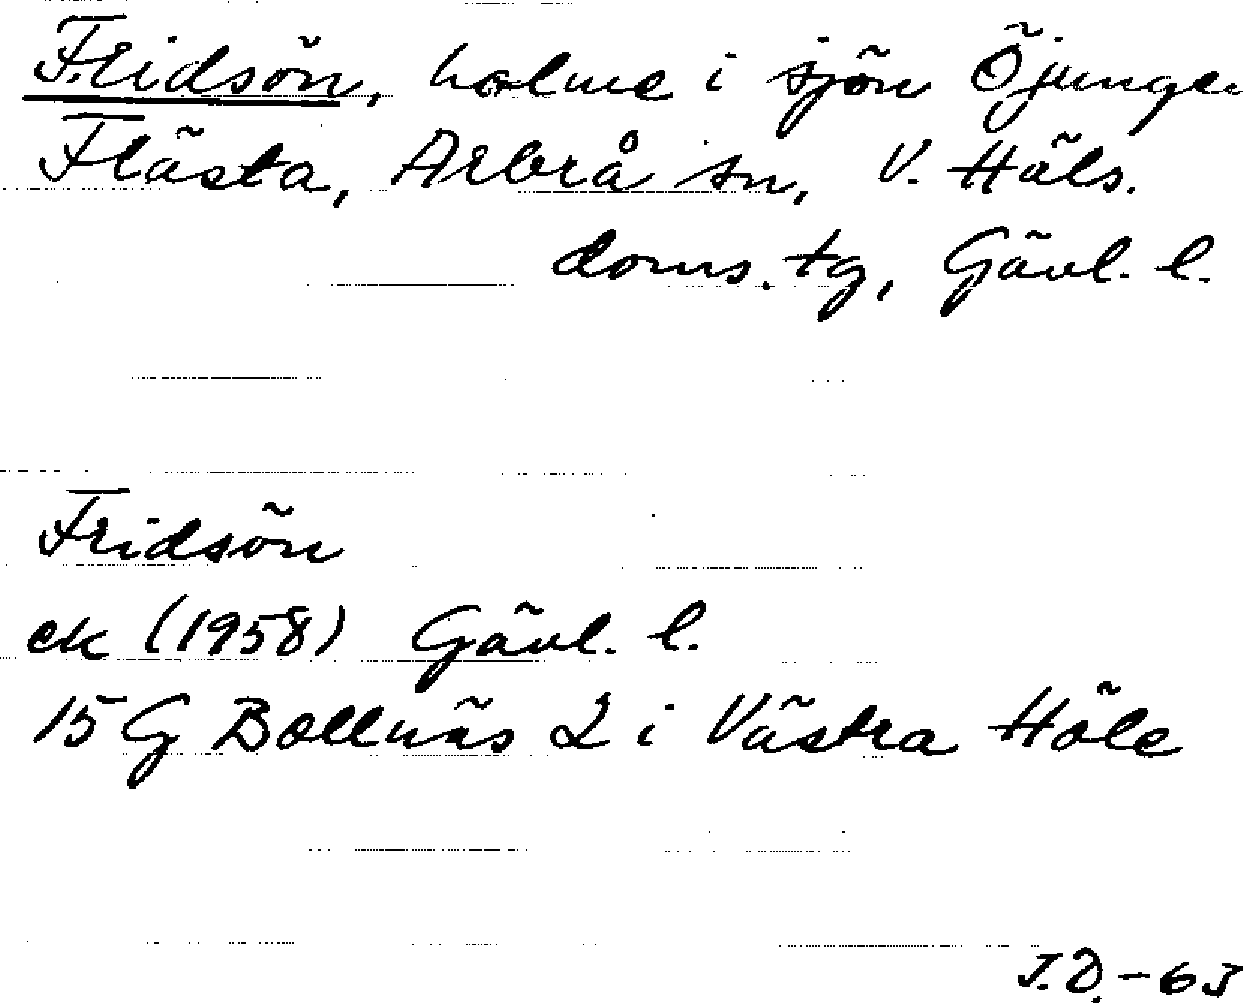 Fridsön, holme i sjön Öjungen
Flästa, Arbrå sn, V. Häls.
doms. tg, Gävl. l.
Fridsön
ek (1958) Gävl. l.
15 G Bollnäs 2 i Västra Höle
J.D. -63